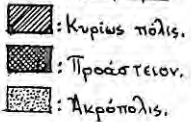 : Κυρίως πόλις.
: Προάστειον.
: Ἀκρόπολις.